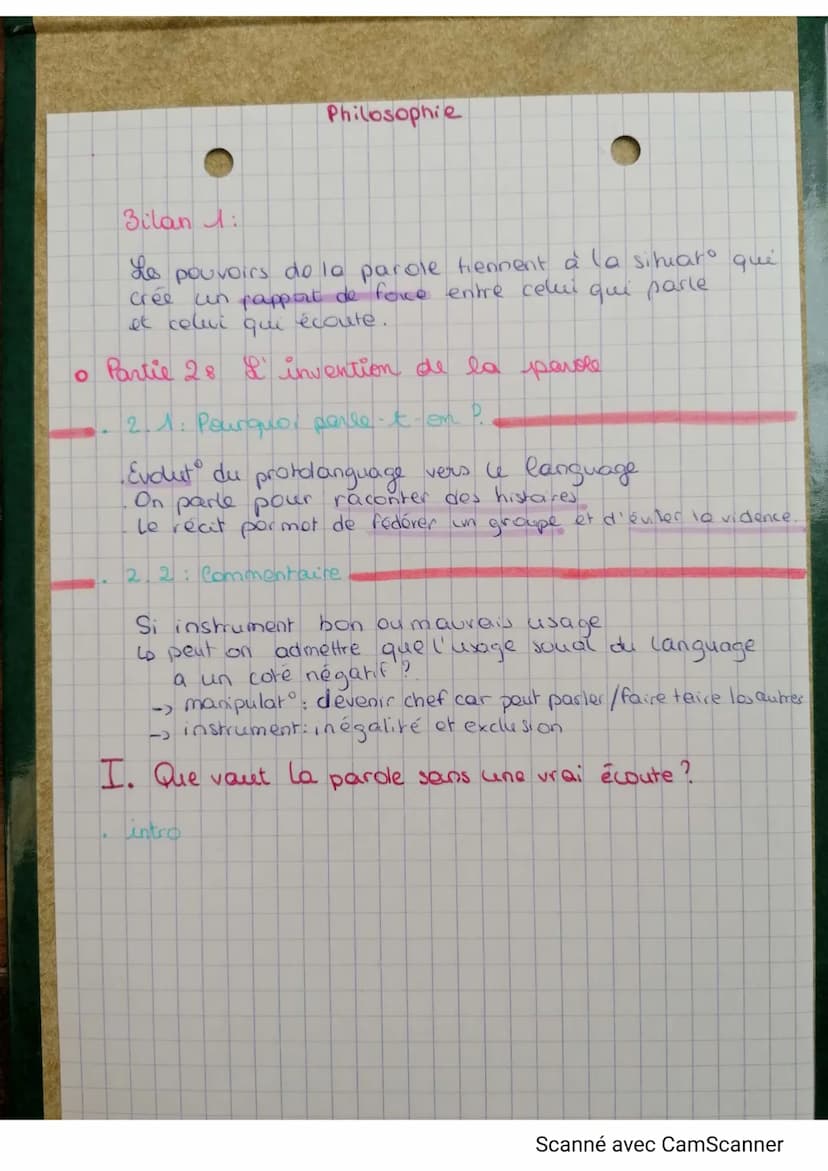 Philosophie
Bilan 1:
Les pouvoirs de la parole tiennent à la situat° qui
crée un rapport de force entre celui qui parle
et celui qui écoute.
Partie 2: L'invention de la parole
. 2.1: Pourquoi parle-t-on ?
. Evolut° du protolanguage vers le language
. On parle pour raconter des histoires
. Le récit permet de fédérer un groupe et d'éviter la violence.
. 2.2: Commentaire
Si instrument bon ou mauvais usage
↳ peut on admettre que l'usage social du language
a un coté négatif ?
-> manipulat°: devenir chef car peut parler/faire taire les autres
-> instrument: inégalité et exclusion
I. Que vaut la parole sans une vrai écoute ?
. intro
Scanné avec CamScanner